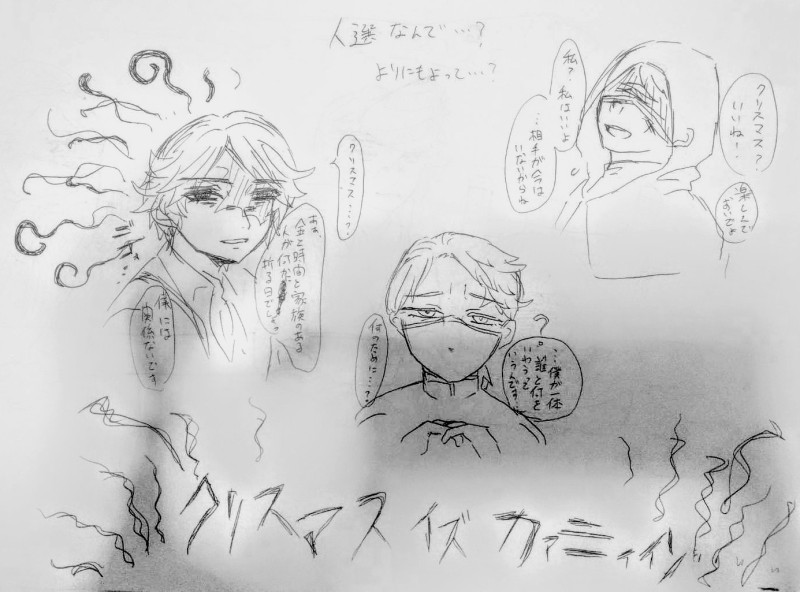 人選なんで…?
よりにもよって…?
クリスマス?
いいね!
楽しんで
おいでよ
私?
私はいいよ
…相手が今は
いないからね
クリスマス…?
あぁ、
金と時間と家族のある
人が何か
祈る日でしょ
僕には
関係ないです
何のために…?
?
…僕が一体
誰と何を
いわうって
いうんです
クリスマス イズ カァミィイング